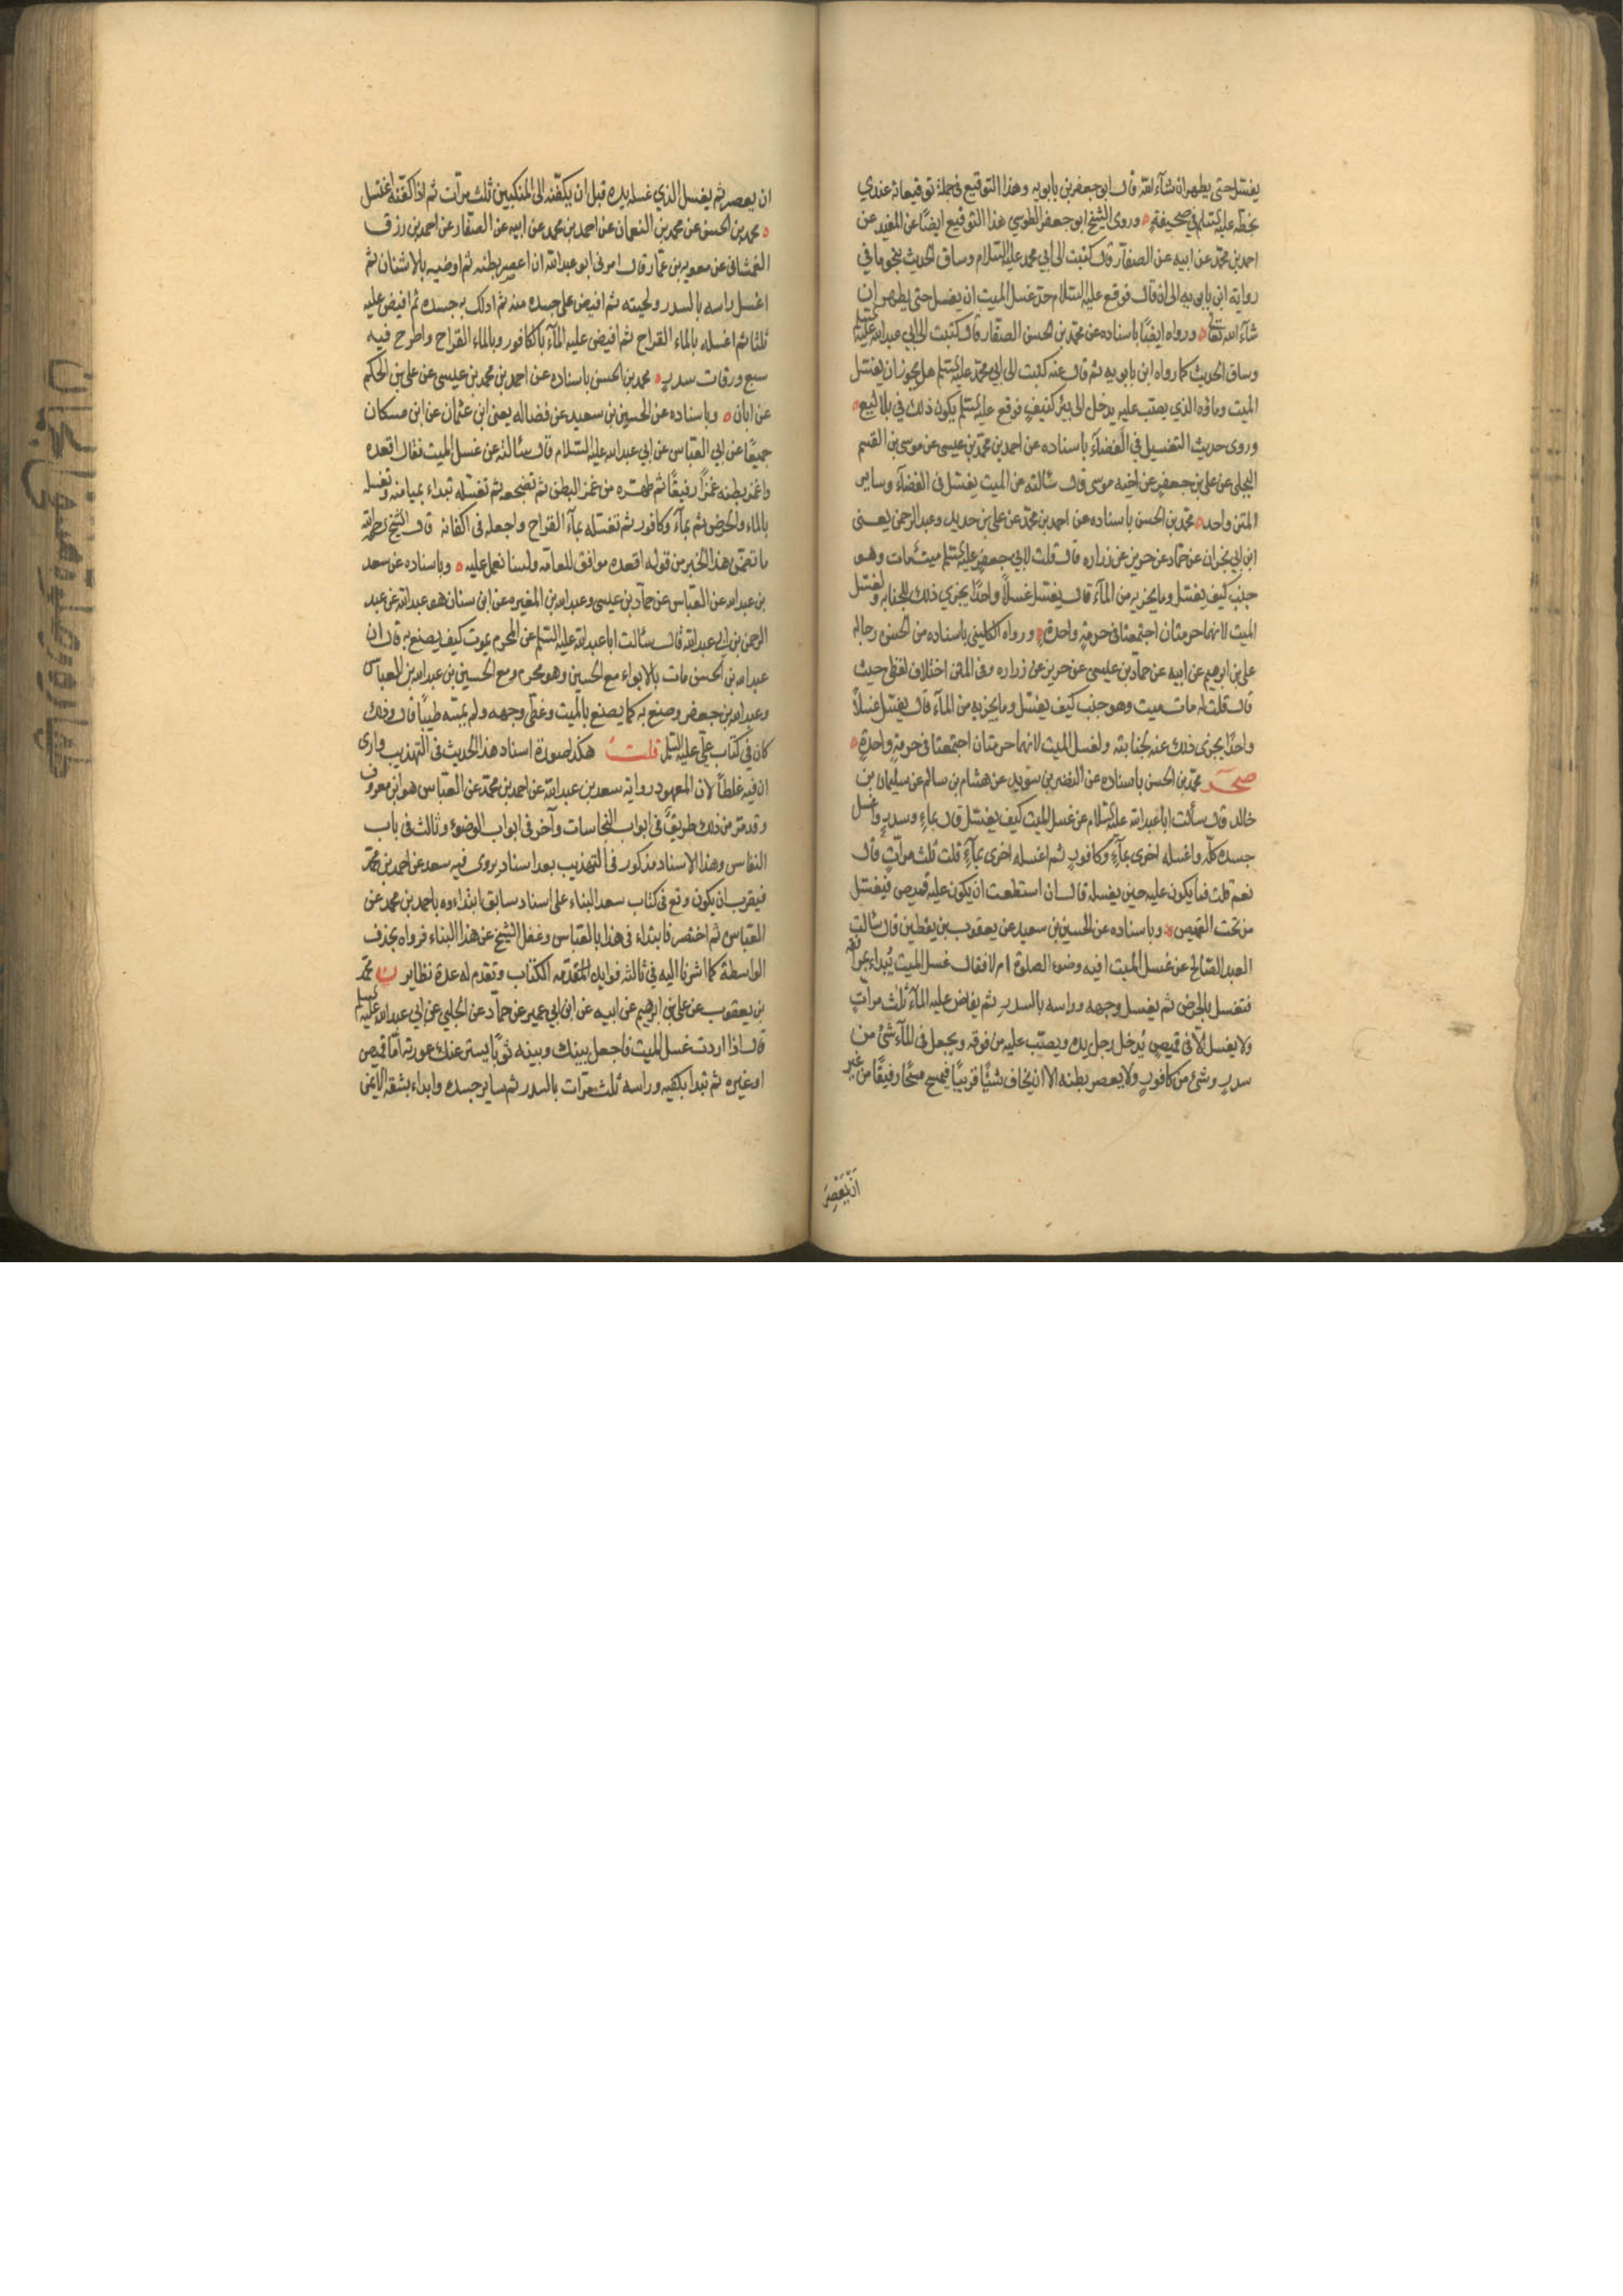 يغتسل حتى يطهر ان شآء الله قال ابو جعفر بن بابويه وهذا التوقيع في جملة توقيعاته عندي
بخطه عليه السلم في صحيفة وروى الشيخ ابو جعفر الطوسي هذا التوقيع ايضًا عن المفيد عن
احمد بن محمد عن ابيه عن الصفار قال كتبت الى ابي محمد عليه السلام وساق الحديث بنحو ما في
رواية ابن بابويه الى ان قال فوقع عليه السلام حد غسل الميت ان يغسل حتى يطهر ان
شآء الله تعالى ورواه ايضًا باسناده عن محمد بن الحسن الصفار قال كتبت الى ابي عبد الله عليه السلم
وساق الحديث كما رواه ابن بابويه ثم قال عنه كتبت الى ابي محمد عليه السلم هل يجوز ان يغتسل
الميت وماؤه الذي يصب عليه يدخل الى بئر كنيف فوقع عليه السلم يكون ذلك في بلاليع
وروى حديث التغسيل في الفضآء باسناده عن احمد بن محمد بن عيسى عن موسى بن القسم
البجلي عن علي بن جعفر عن اخيه موسى قال سئالته عن الميت يغتسل في الفضآء وساير
المتن واحد محمد بن الحسن باسناده عن احمد بن محمد عن علي بن حديد وعبد الرحمن يعنى
ابن ابي نجران عن حماد عن حريز عن زراره قال قلت لابي جعفر عليه السلم ميت مات وهو
جنب كيف يغتسل وما يجزيه من المآء قال يغتسل غسلًا واحدًا يجزي ذلك للجنابه ولغسل
الميت لانهما حرمتان اجتمعتا في حرمة واحدة ورواه الكليني باسناده من الحسن رجاله
علي بن ابرهيم عن ابيه عن حماد بن عيسى عن حريز عن زراره وفي المتن اختلاف لفظي حيث
قال قلت له مات ميت وهو جنب كيف يغتسل وما يجزيه من المآء قال يغتسل غسلًا
واحدًا يجزى ذلك عنه لجنابته ولغسل الميت لانهما حرمتان اجتمعتا في حرمة واحدة
صحر محمد بن الحسن باسناده عن النضر بن سويد عن هشام بن سالم عن سليمان بن
خالد قال سألت ابا عبد الله عليه السلام عن غسل الميت كيف يغتسل قال بماء وسدر واغسل
جسده كله واغسله اخرى بمآء وكافور ثم اغسله اخرى بمآء قلت ثلث مرات قال
نعم قلت فما يكون عليه حين يغسله قال ان استطعت ان يكون عليه قميص فيغسل
من تحت القميص وباسناده عن الحسين بن سعيد عن يعقوب بن يقطين قال سئالت
العبد الصالح عن غسل الميت افيه وضوء الصلوة ام لا فقال غسل الميت يبداء بمرافقه
فتغسل بالحرض ثم يغسل وجهه وراسه بالسدر ثم يفاض عليه المآء ثلث مرات
ولا يغسل الا في قميص يدخل رجل يده ويصب عليه من فوقه ويجعل في المآء شئ من
سدر وشئ من كافور ولا يعصر بطنه الا ان يخاف شيئًا قريبًا فيمسح مسحًا رفيقًا من غير
ان يعصر
ان يعصر ثم يغسل الذي غسله يده قبل ان يكفنه الى المنكبين ثلث مرات ثم اذا كفنه اغتسل
محمد بن الحسن عن محمد بن النعمان عن احمد بن محمد عن ابيه عن الصفار عن احمد بن رزق
الغمشاني عن معويه بن عمار قال امرنى ابو عبد الله ان اعصر بطنه ثم اوضيه بالاشنان ثم
اغسل راسه بالسدر ولحيته ثم افيض على جسده منه ثم ادلك به جسده ثم افيض عليه
ثلثا ثم اغسله بالماء القراح ثم افيض عليه المآء بالكافور وبالماء القراح واطرح فيه
سبع ورقات سدر محمد بن الحسن باسناده عن احمد بن محمد بن عيسى عن علي بن الحكم
عن ابان وباسناده عن الحسين بن سعيد عن فضاله يعنى ابن عثمان عن ابن مسكان
جميعًا عن ابي العباس عن ابي عبد الله عليه السلام قال سئالته عن غسل الميت فقال اقعده
واغمز بطنه غمزًا رفيقًا ثم طهره من غمز البطن ثم تضجعه ثم تغسله تبداء بميامنه وتغسله
بالماء والحرض ثم بمآء وكافور ثم تغسله بمآء القراح واجعله في اكفانه قال الشيخ رحمه الله
ما تضمن هذا الخبر من قوله اقعده موافق للعامه ولسنا نعمل عليه وباسناده عن سعد
بن عبد الله عن العباس عن حماد بن عيسى وعبد الله بن المغيره عن ابن سنان هو عبد الله عن عبد
الرحمن بن ابي عبد الله قال سئالت ابا عبد الله عليه السلم عن المحرم يموت كيف يصنع به قال ان
عبد الله بن الحسن مات بالابواء مع الحسين وهو محرم ومع الحسين بن عبد الله بن العباس
وعبد الله بن جعفر وصنع به كما يصنع بالميت وغطى وجهه ولم يمسه طيبًا قال وذلك
كان في كتاب علي عليه السلم قلت هكذا صورة اسناد هذا الحديث في التهذيب وارى
ان فيه غلطًا لان المعهود رواية سعد بن عبد الله عن احمد بن محمد عن العباس هو ابن معروف
وقد مر من ذلك طريق في ابواب النجاسات وآخر في ابواب الوضوء وثالث في باب
النفاس وهذا الاسناد مذكور في التهذيب بعد اسناد يروى فيه سعد عن احمد بن محمد
فيقرب ان يكون وقع في كتاب سعد البناء على اسناد سابق ابتداءوه باحمد بن محمد عن
العباس ثم اختصر فابتداء في هذا بالعباس وغفل الشيخ عن هذا البناء فرواه بحذف
الواسطة كما اشرنا اليه في ثالثه فوايد المقدمه الكتاب وتقدم له عدة نظاير ن محمد
بن يعقوب عن علي بن ابرهيم عن ابيه عن ابن ابي عمير عن حماد عن الحلبي عن ابي عبد الله عليه السلم
قال اذا اردت غسل الميت فاجعل بينك وبينه ثوبًا يستر عنك عورته اما قميص
او غيره ثم تبدا بكفيه وراسه ثلث مرات بالسدر ثم ساير جسده وابداء بشقه الايمن